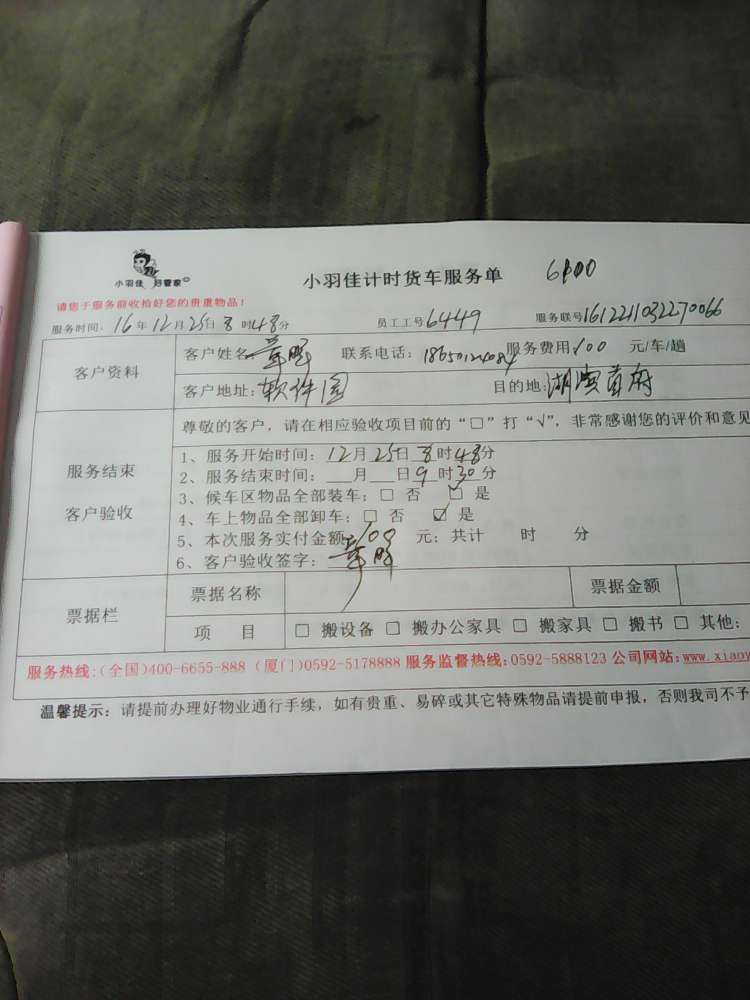 小羽佳 好管家
小羽佳计时货车服务单 6100
请您于服务前收拾好您的贵重物品!
服务时间: 16年12月25日8时48分 员工工号6449 服务联号1612211032270066
客户资料
客户姓名: 联系电话: 服务费用:100 元/车/趟
客户地址: 软件园 目的地: 湖滨首府
服务结束
客户验收
尊敬的客户,请在相应验收项目前的“□”打“√”,非常感谢您的评价和意见
1、服务开始时间: 12月25日8时48分
2、服务结束时间: ___月___日9时30分
3、候车区物品全部装车: □ 否 ☑ 是
4、车上物品全部卸车: □ 否 ☑ 是
5、本次服务实付金额: 100 元; 共计 时 分
6、客户验收签字:
票据栏
票据名称 票据金额
项 目 □ 搬设备 □ 搬办公家具 □ 搬家具 □ 搬书 □ 其他:
服务热线:(全国)400-6655-888 (厦门)0592-5178888 服务监督热线:0592-5888123 公司网站:www.xiaoy
温馨提示: 请提前办理好物业通行手续,如有贵重、易碎或其它特殊物品请提前申报,否则我司不予